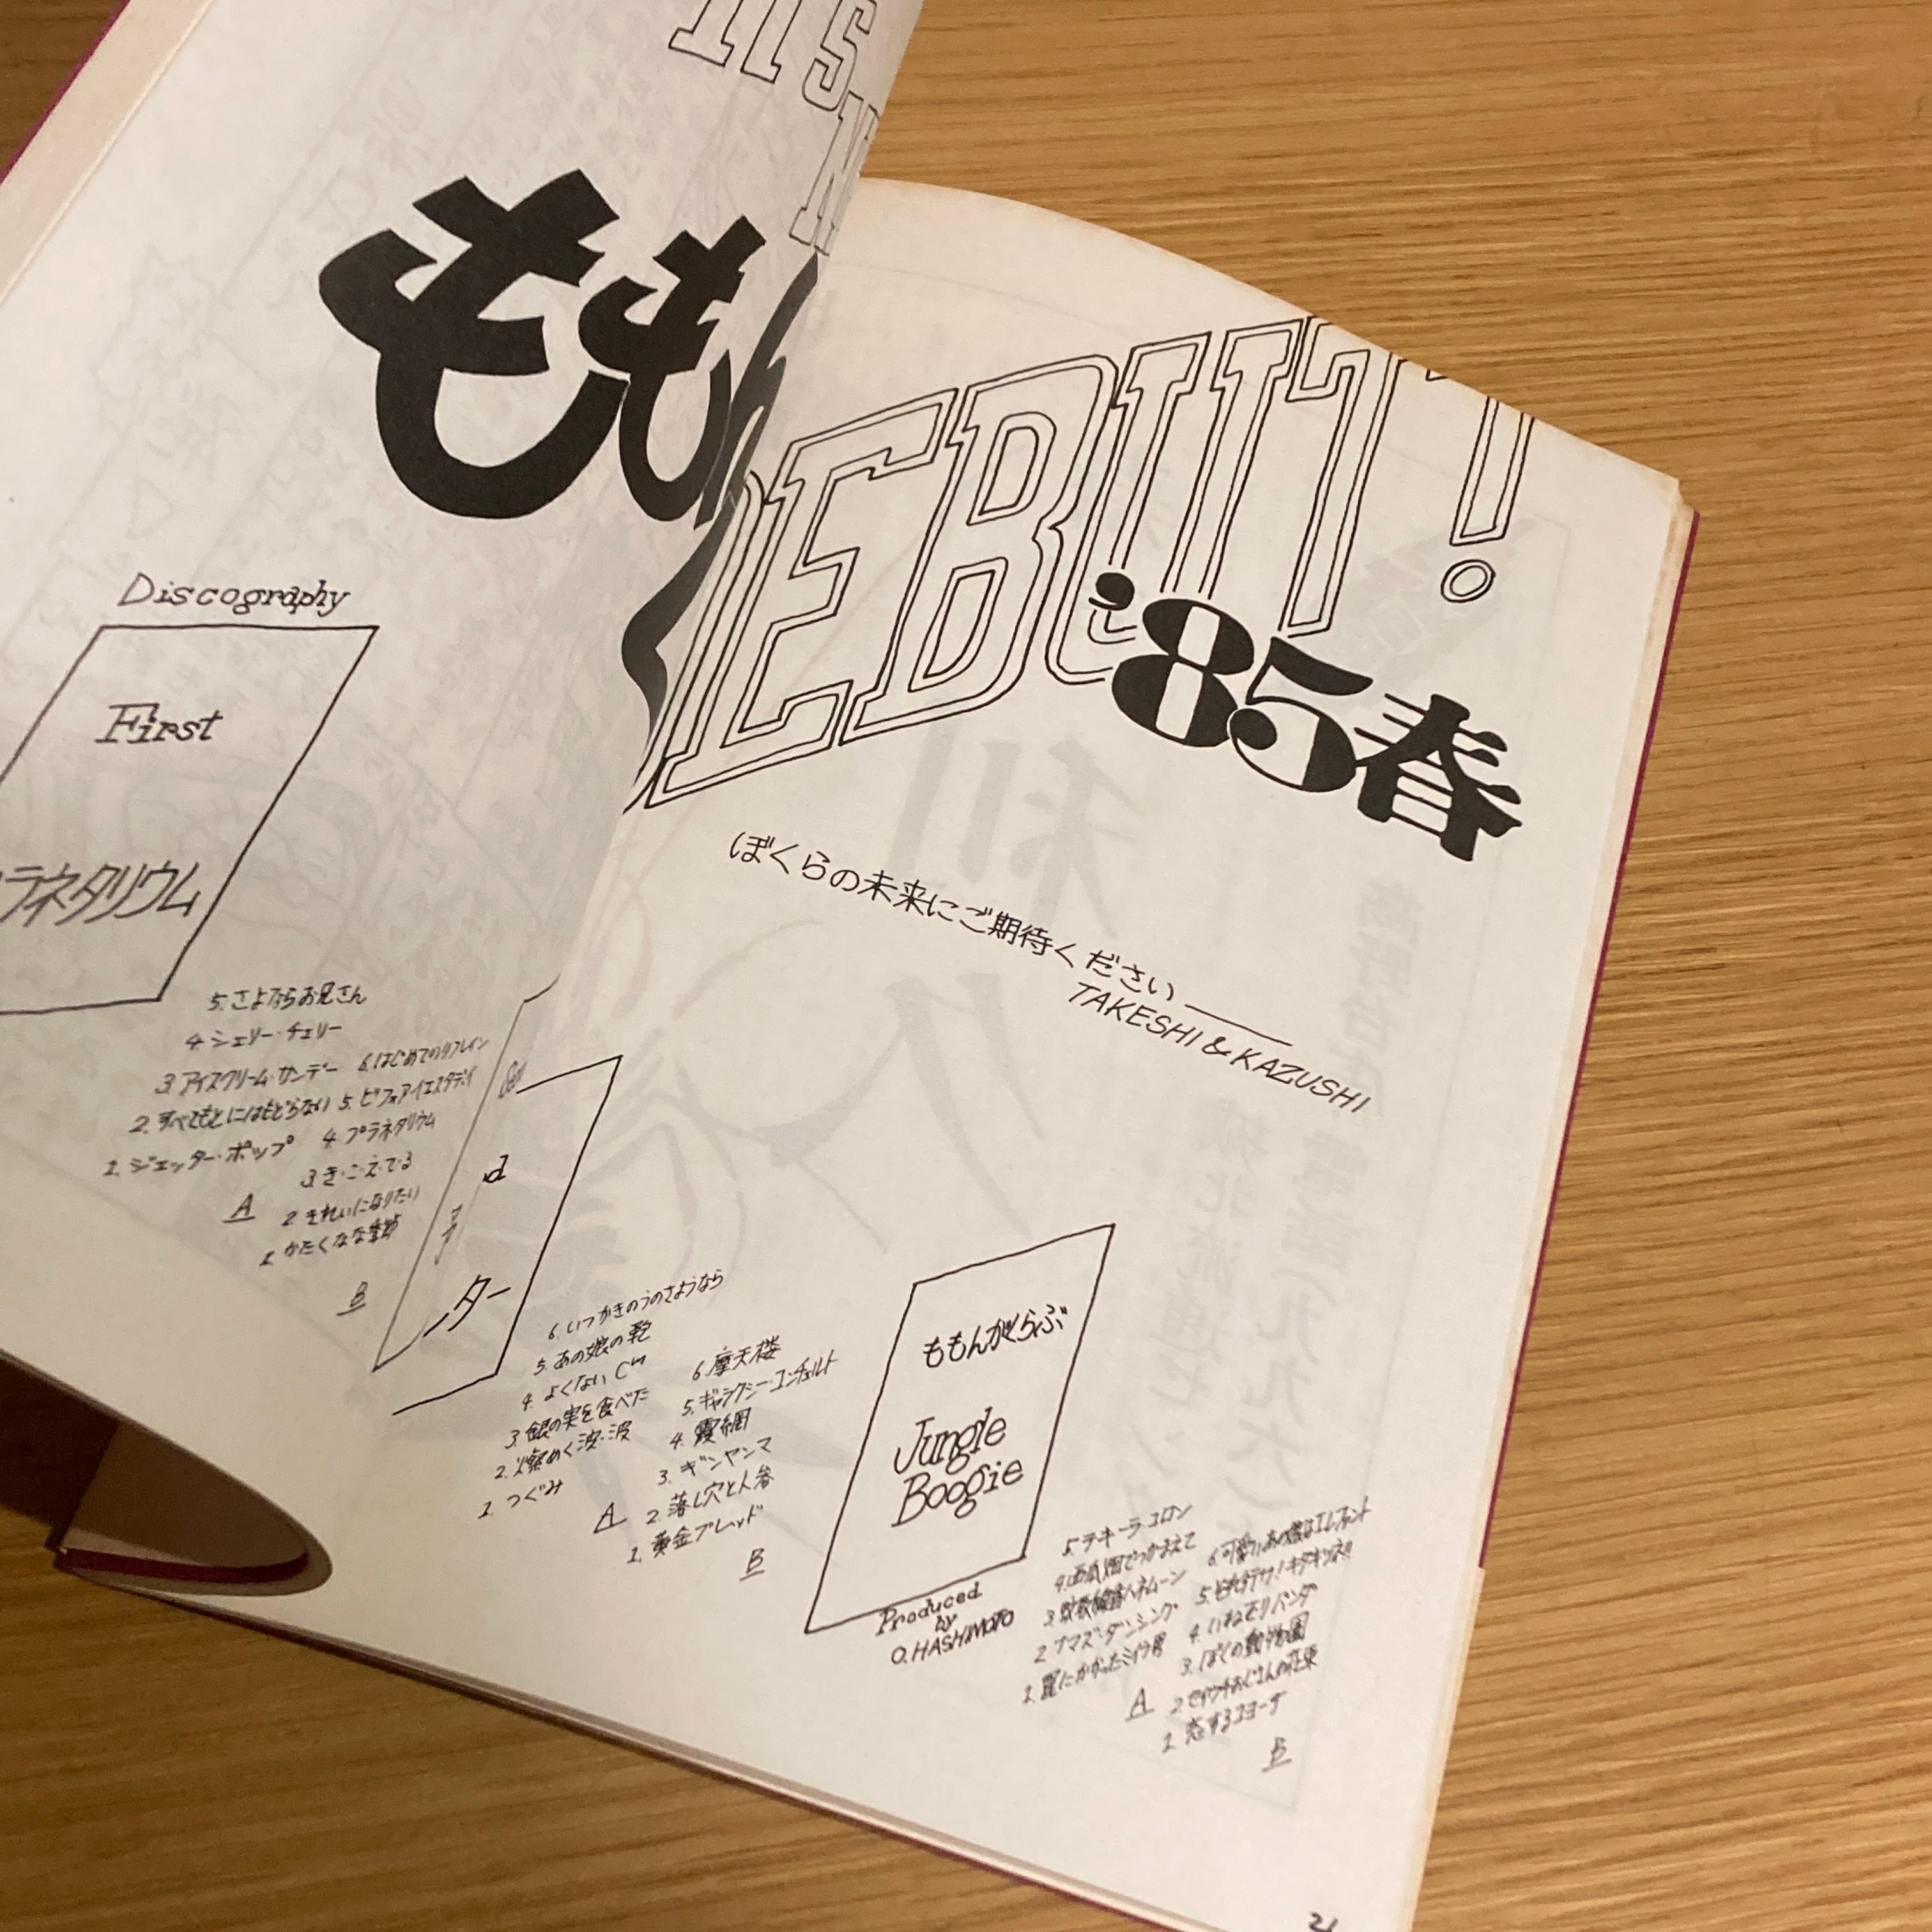 IT'S
もも
Discography
First
ラネタリウム
5. さよならお兄さん
4. シェリー・チェリー
3. アイスクリーム・サンデー
2. すべてもとにはもどらない
1. ジェッター・ポップ
A
6. はじめてのリフレイン
5. ビフォア・イエスタデイ
4. プラネタリウム
3. き・こ・え・て・る
2. きれいになりたい
1. かたくなな季節
B
DEBUT!
'85春
ぼくらの未来にご期待ください――
TAKESHI & KAZUSHI
d
ター
6. いつかきのうのさようなら
5. あの娘の靴
4. よくない
3. 銀の実を食べた
2. 燦めく波・波
1. つぐみ
A
6. 摩天楼
5. ギャラクシー・コンチェルト
4. 霞網
3. ギンヤンマ
2. 落し穴と人参
1. 黄金ブレッド
B
ももんがくらぶ
Jungle
Boogie
Produced
by
O. HASHIMOTO
5. テキーラ・コロン
4. 西瓜畑でつかまえて
3. ハネムーン
2. ナマズ・ダンシング
1. 罠にかかった
A
6. 可愛いあの娘はエレファント
5. キタキツネ!!
4. いねむりパンダ
3. ぼくの動物園
2. セイウチおじさんの花束
1. 恋するコヨーテ
B
21